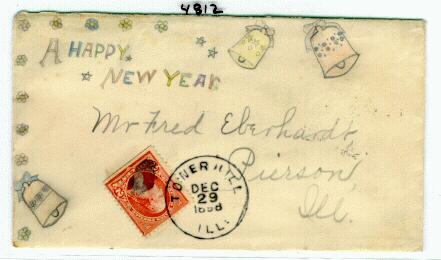 4812
A HAPPY
NEW YEAR
Mr Fred Eberhardt
Pierson
Ill.
TOWER HILL
DEC
29
1898
ILL.